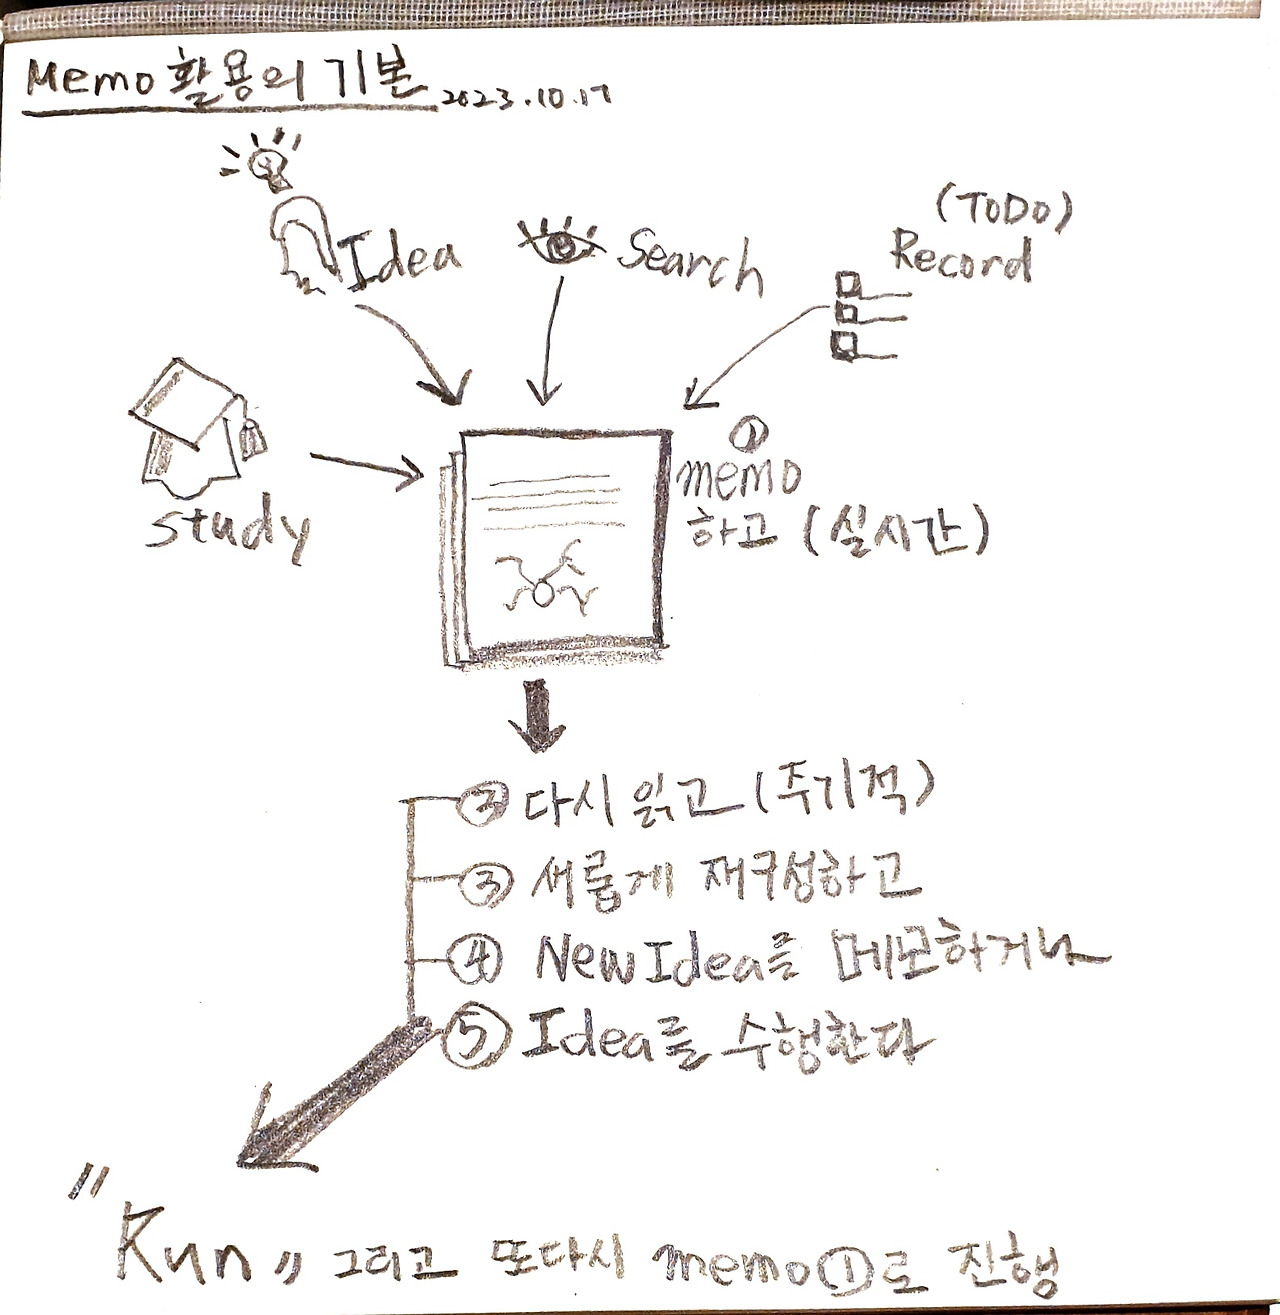 Memo 활용의 기본 2023.10.17
Idea
Search
(ToDo)
Record
study
①
memo
하고 (실시간)
② 다시 읽고 (주기적)
③ 새롭게 재구성하고
④ New Idea를 메모하거나
⑤ Idea를 수행한다
"Run" 그리고 또다시 memo①로 진행